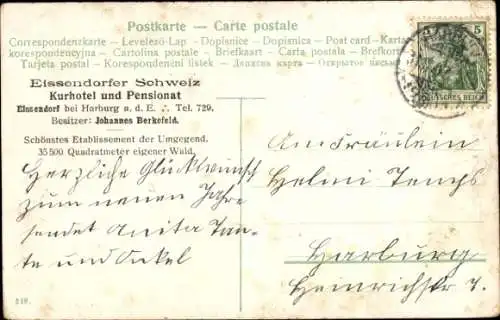 Postkarte — Carte postale
Correspondenzkarte — Levelező-Lap — Dopisnice — Dopisnica — Post card — Karta
korespondencyjna — Cartolina postale — Briefkaart — Carta postala — Brefkort
Tarjeta postal — Korespondenční lístek — Открытое
5
DEUTSCHES REICH
Eissendorfer Schweiz
Kurhotel und Pensionat
Eissendorf bei Harburg a. d. E. ∴ Tel. 729.
Besitzer: Johannes Berkefeld.
Schönstes Etablissement der Umgegend.
35500 Quadratmeter eigener Wald.
Herzliche Glückwunsch
zum neuen Jahre
sendet Anita Tan-
te und Onkel
An Fräulein
Helmi
Harburg
Heinrichstr 7.